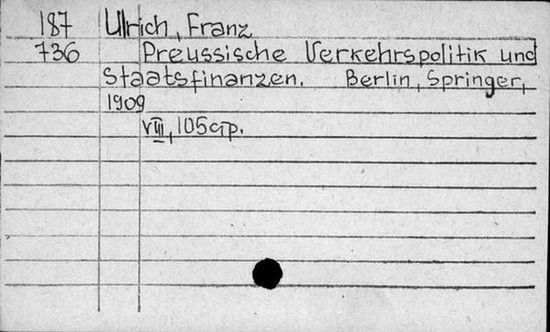 187 Ulrich, Franz
736 Preussische Verkehrspolitik und
Staatsfinanzen. Berlin, Springer,
1909
VIII,